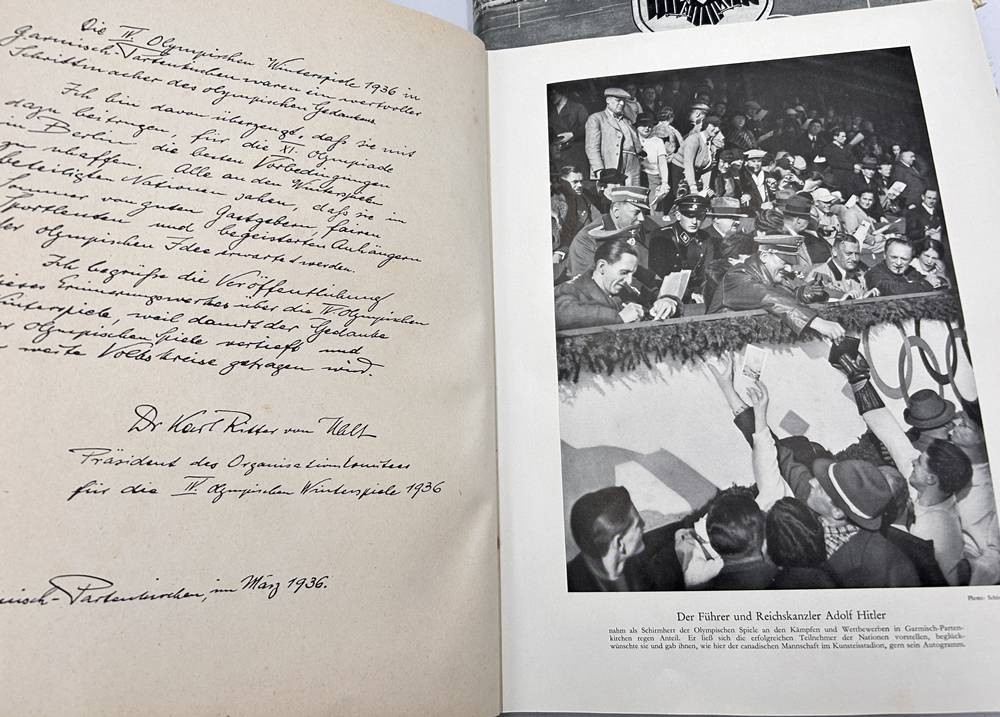 Die IV. Olympischen Winterspiele 1936 in
Garmisch-Partenkirchen waren ein wertvoller
Schrittmacher des olympischen Gedankens
Ich bin davon überzeugt, daß sie mit
dazu beitrugen, für die XI. Olympiade
in Berlin die besten Vorbedingungen
zu schaffen. Alle an den Winterspielen
beteiligten Nationen sahen, daß sie im
Sommer von guten Gastgebern, fairen
Sportleuten und begeisterten Anhängern
der olympischen Idee erwartet werden.
Ich begrüße die Veröffentlichung
dieses Erinnerungswerkes über die IV. Olympischen
Winterspiele, weil damit der Gedanke
der Olympischen Spiele vertieft und
weite Volkskreise getragen wird.
Dr Karl Ritter von Halt
Präsident des Organisationskomitees
für die IV. Olympischen Winterspiele 1936
-Partenkirchen, im März 1936.
Photo:
Der Führer und Reichskanzler Adolf Hitler
nahm als Schirmherr der Olympischen Spiele an den Kämpfen und Wettbewerben in Garmisch-Parten-
kirchen regen Anteil. Er ließ sich die erfolgreichen Teilnehmer der Nationen vorstellen, beglück-
wünschte sie und gab ihnen, wie hier der canadischen Mannschaft im Kunsteisstadion, gern sein Autogramm.